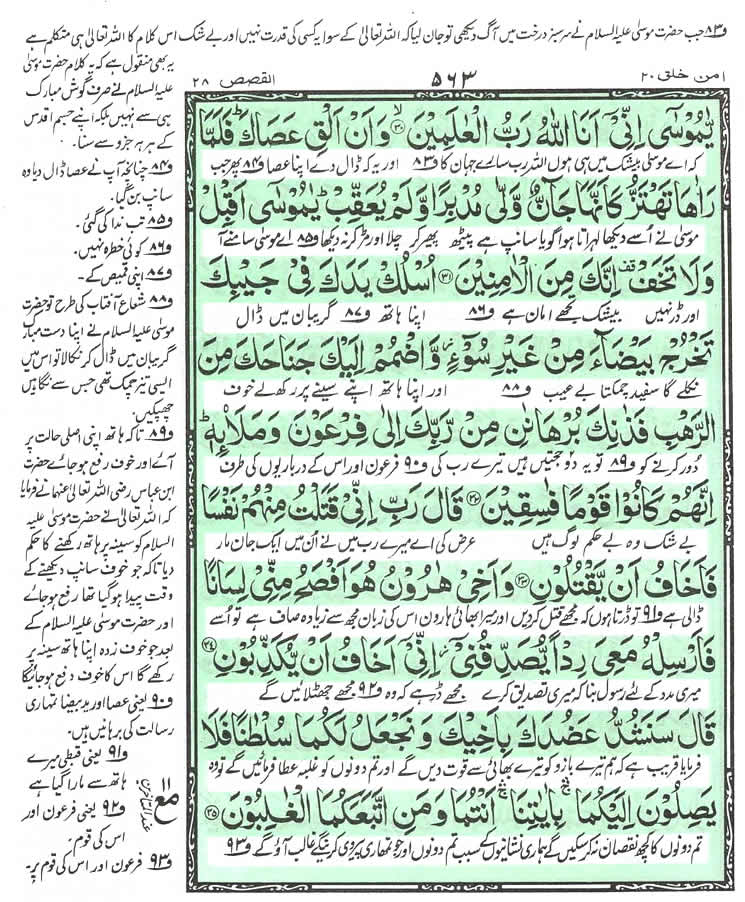 ف۸۳ جب حضرت موسیٰ علیہ السلام نے سرسبز درخت میں آگ دیکھی تو جان لیا کہ اللہ تعالیٰ کے سوا یہ کسی کی قدرت نہیں اور بے شک اس کلام کا اللہ تعالیٰ ہی متکلم ہے
امن خلق ۲۰
۵۶۳
القصص ۲۸
یٰمُوْسٰۤی اِنِّیْۤ اَنَا اللّٰهُ رَبُّ الْعٰلَمِیْنَ ۙ۳۰ وَاَنْ اَلْقِ عَصَاكَ ؕ فَلَمَّا
کہ اے موسیٰ بیشک میں ہی ہوں اللہ رب سارے جہان کا ف۸۳ اور یہ کہ ڈال دے اپنا عصا ف۸۴ پھر جب
رَاٰهَا تَهْتَزُّ كَاَنَّهَا جَآنٌّ وَّلّٰی مُدْبِرًا وَّلَمْ یُعَقِّبْ ؕ یٰمُوْسٰۤی اَقْبِلْ
موسیٰ نے اُسے دیکھا لہراتا ہوا گویا سانپ ہے پیٹھ پھیر کر چلا اور مڑ کر نہ دیکھا ف۸۵ اے موسیٰ سامنے آ
وَلَا تَخَفْ ۫ اِنَّكَ مِنَ الْاٰمِنِیْنَ ۳۱ اُسْلُكْ یَدَكَ فِیْ جَیْبِكَ
اور ڈر نہیں بیشک تجھے امان ہے ف۸۶ اپنا ہاتھ ف۸۷ گریبان میں ڈال
تَخْرُجْ بَیْضَآءَ مِنْ غَیْرِ سُوْٓءٍ ۫ وَّاضْمُمْ اِلَیْكَ جَنَاحَكَ مِنَ
نکلے گا سفید چمکتا بے عیب ف۸۸ اور اپنا ہاتھ اپنے سینے پر رکھ لے خوف
الرَّهْبِ فَذٰنِكَ بُرْهَانٰنِ مِنْ رَّبِّكَ اِلٰی فِرْعَوْنَ وَمَلَاۡىِٕهٖ ؕ
دُور کرنے کو ف۸۹ تو یہ دو حجتیں ہیں تیرے رب کی ف۹۰ فرعون اور اس کے درباریوں کی طرف
اِنَّهُمْ كَانُوْا قَوْمًا فٰسِقِیْنَ ۳۲ قَالَ رَبِّ اِنِّیْ قَتَلْتُ مِنْهُمْ نَفْسًا
بے شک وہ بے حکم لوگ ہیں عرض کی اے میرے رب میں نے اُن میں ایک جان مار
فَاَخَافُ اَنْ یَّقْتُلُوْنِ ۳۳ وَاَخِیْ هٰرُوْنُ هُوَ اَفْصَحُ مِنِّیْ لِسَانًا
ڈالی ہے ف۹۱ تو ڈرتا ہوں کہ مجھے قتل کر دیں اور میرا بھائی ہارون اس کی زبان مجھ سے زیادہ صاف ہے تو اُسے
فَاَرْسِلْهُ مَعِیَ رِدْاً یُّصَدِّقُنِیْۤ ۫ اِنِّیْۤ اَخَافُ اَنْ یُّكَذِّبُوْنِ ۳۴
میری مدد کے لئے رسول بنا کہ میری تصدیق کرے مجھے ڈر ہے کہ وہ ف۹۲ مجھے جھٹلائیں گے
قَالَ سَنَشُدُّ عَضُدَكَ بِاَخِیْكَ وَنَجْعَلُ لَكُمَا سُلْطٰنًا فَلَا
فرمایا قریب ہے کہ ہم تیرے بازو کو تیرے بھائی سے قوت دیں گے اور تم دونوں کو غلبہ عطا فرمائیں گے تو وہ
یَصِلُوْنَ اِلَیْكُمَا ۛۚ بِاٰیٰتِنَاۤ ۛۚ اَنْتُمَا وَمَنِ اتَّبَعَكُمَا الْغٰلِبُوْنَ ۳۵
تم دونوں کا کچھ نقصان نہ کر سکیں گے ہماری نشانیوں کے سبب تم دونوں اور جو تمہاری پیروی کریں گے غالب آؤ گے ف۹۳
یہ بھی منقول ہے کہ یہ کلام حضرت موسیٰ
علیہ السلام نے صرف گوش مبارک
ہی سے نہیں بلکہ اپنے جسم اقدس
کے ہر ہر جزو سے سنا۔
ف۸۴ چنانچہ آپ نے عصا ڈال دیا وہ
سانپ بن گیا۔
ف۸۵ تب ندا کی گئی۔
ف۸۶ کوئی خطرہ نہیں۔
ف۸۷ اپنی قمیص کے۔
ف۸۸ شعاع آفتاب کی طرح تو حضرت
موسیٰ علیہ السلام نے اپنا دست مبارک
گریبان میں ڈال کر نکالا تو اس میں
ایسی تیز چمک تھی جس سے نگاہیں
جھپکیں۔
ف۸۹ تاکہ ہاتھ اپنی اصلی حالت پر
آئے اور خوف رفع ہو جائے حضرت
ابن عباس رضی اللہ تعالیٰ عنہما نے فرمایا
کہ اللہ تعالیٰ نے حضرت موسیٰ علیہ
السلام کو سینہ پر ہاتھ رکھنے کا حکم
دیا تاکہ جو خوف سانپ دیکھنے کے
وقت پیدا ہو گیا تھا رفع ہو جائے
اور حضرت موسیٰ علیہ السلام کے
بعد جو خوف زدہ اپنا ہاتھ سینہ پر
رکھے گا اس کا خوف دفع ہو جائیگا
ف۹۰ یعنی عصا اور ید بیضا تمہاری
رسالت کی برہانیں ہیں۔
ف۹۱ یعنی قبطی میرے
ہاتھ سے مارا گیا ہے
ف۹۲ یعنی فرعون اور
اس کی قوم۔
ف۹۳ فرعون اور اس کی قوم پر۔
۱۱
مع